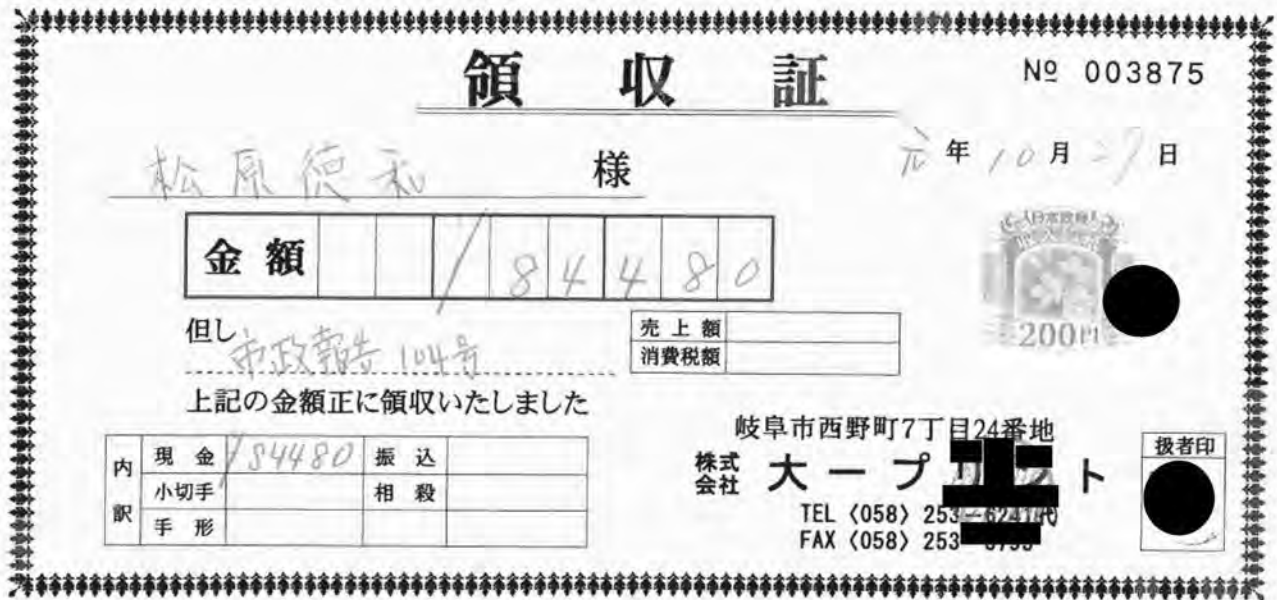 領収証
№ 003875
元年10月27日
松原徳和 様
金額 184480
日本政府
200円
但し 市政報告 104号
売上額
消費税額
上記の金額正に領収いたしました
内訳
現金 184480 振込
小切手 相殺
手形
岐阜市西野町7丁目24番地
株式会社 大一プリント
TEL〈058〉253-6241代
FAX〈058〉253
扱者印